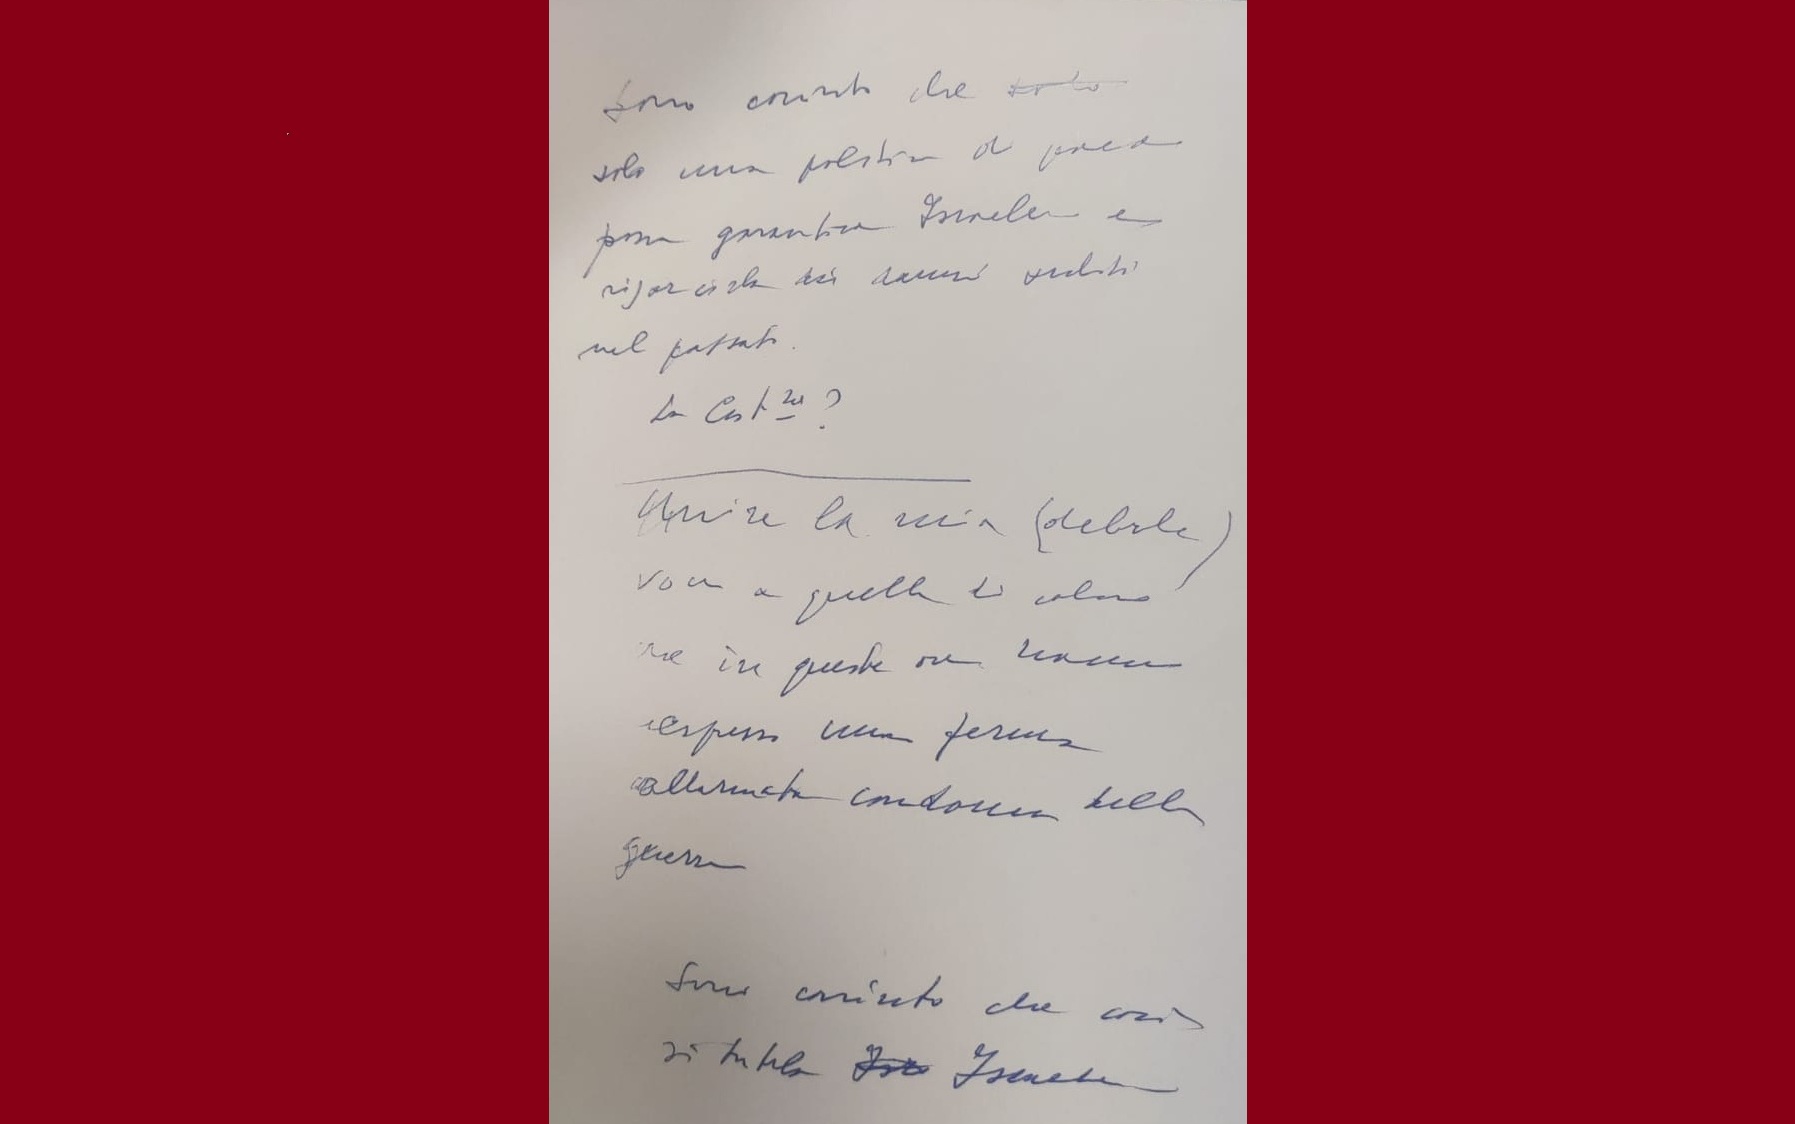 Sono convinto che solo
solo una politica di pace
possa garantire Israele e
risarcirla dei danni subiti
nel passato.
La Cost.ne?
Unire la mia (debole)
voce a quella di coloro
che in queste ore hanno
espresso una ferma
allarmata condanna della
guerra
Sono convinto che così
si tutela Isr Israele